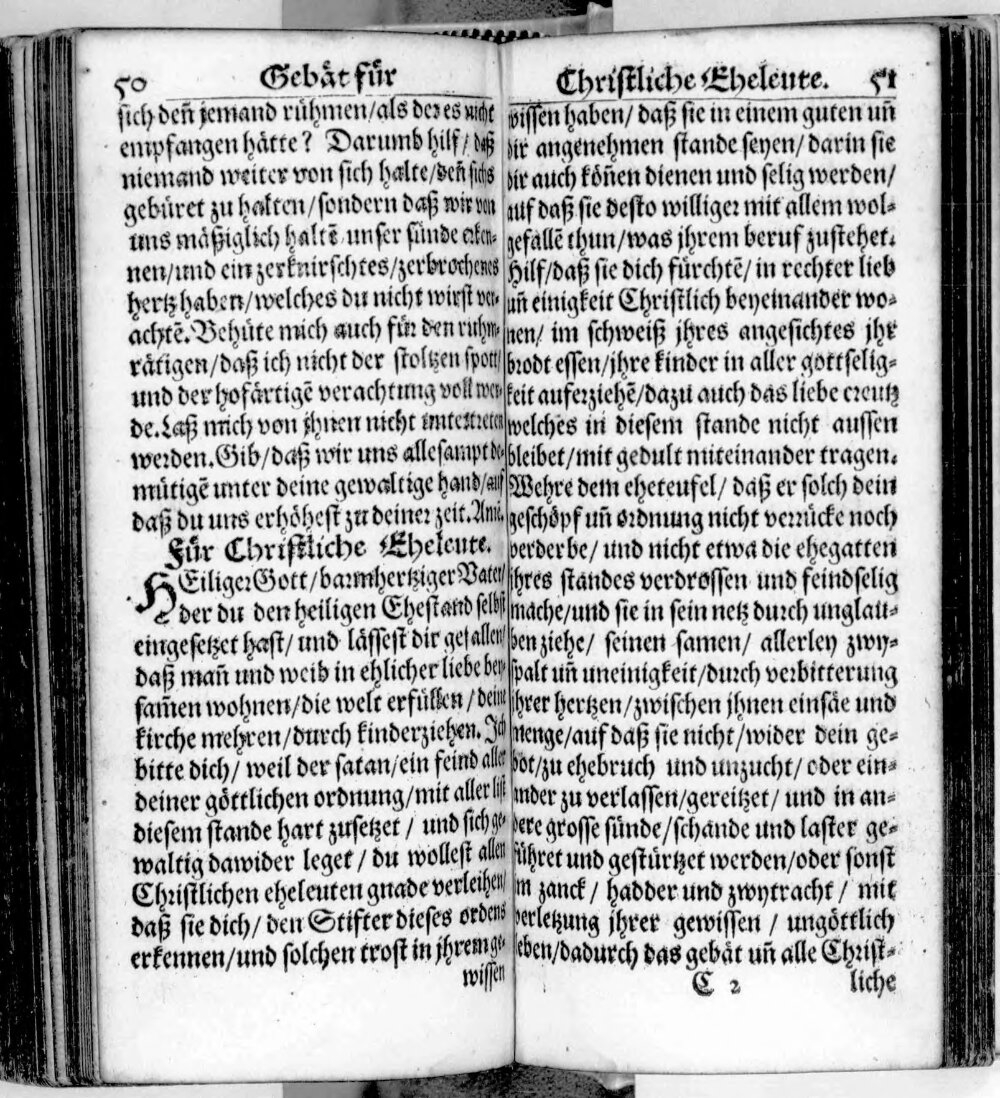 50 Gebät für
sich deñ jemand rühmen/als der es nicht
empfangen hätte? Darumb hilf/daß
niemand weiter von sich halte/deñ sichs
gebüret zu halten/sondern daß wir von
uns mäßiglich haltē unser sünde erken-
nen/und ein zerknirschtes/zerbrochenes
hertz haben/welches du nicht wirst ver-
achtē. Behüte mich auch für den ruhm-
rätigen/daß ich nicht der stoltzen spott/
und der hofärtigē verachtung voll wer-
de. Laß mich von jhnen nicht untertreten
werden. Gib/daß wir uns allesampt de-
mütigē unter deine gewaltige hand/auf
daß du uns erhöhest zu deiner zeit. Amē.
Für Christliche Eheleute.
HEiliger Gott/barmhertziger Vater/
der du den heiligen Ehestand selbst
eingesetzet hast/ und lässest dir gefallen/
daß mañ und weib in ehlicher liebe bey-
sam̃en wohnen/die welt erfüllen/deine
kirche mehren/durch kinderziehen. Ich
bitte dich/ weil der satan/ein feind aller
deiner göttlichen ordnung/mit aller list
diesem stande hart zusetzet/ und sich ge-
waltig dawider leget/ du wollest allen
Christlichen eheleuten gnade verleihen/
daß sie dich/ den Stifter dieses ordens
erkennen/und solchen trost in jhrem ge-
wissen
Christliche Eheleute. 51
wissen haben/ daß sie in einem guten uñ
dir angenehmen stande seyen/ darin sie
dir auch köñen dienen und selig werden/
auf daß sie desto williger mit allem wol-
gefallē thun/was jhrem beruf zustehet.
Hilf/daß sie dich fürchtē/ in rechter lieb
uñ einigkeit Christlich beyeinander wo-
nen/ im schweiß jhres angesichtes jhr
brodt essen/jhre kinder in aller gottselig-
keit auferziehē/dazu auch das liebe creutz
welches in diesem stande nicht aussen
bleibet/mit gedult miteinander tragen.
Wehre dem eheteufel/ daß er solch dein
geschöpf uñ ordnung nicht verrücke noch
verderbe/ und nicht etwa die ehegatten
jhres standes verdrossen und feindselig
mache/und sie in sein netz durch unglau-
ben ziehe/ seinen samen/ allerley zwy-
spalt uñ uneinigkeit/durch verbitterung
jhrer hertzen/zwischen jhnen einsäe und
menge/auf daß sie nicht/wider dein ge-
bot/zu ehebruch und unzucht/ oder ein-
ander zu verlassen/gereitzet/ und in an-
dere grosse sünde/schande und laster ge-
führet und gestürtzet werden/oder sonst
im zanck/ hadder und zwytracht/ mit
verletzung jhrer gewissen/ ungöttlich
leben/dadurch das gebät uñ alle Christ-
C 2 liche